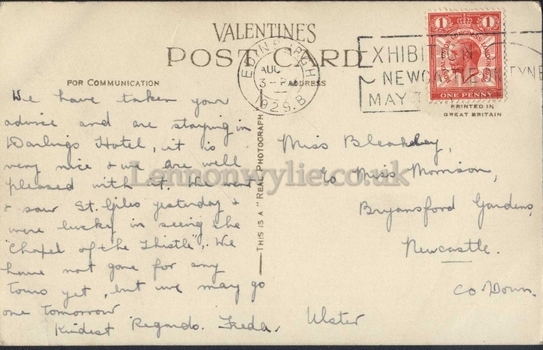 VALENTINES
POST CARD
FOR COMMUNICATION
ADDRESS
EDINBURGH
AUG
1929
EXHIBITION
NEWCASTLE ON TYNE
MAY
1 1
ONE PENNY
PRINTED IN
GREAT BRITAIN
THIS IS A "REAL PHOTOGRAPH"
We have taken your
advice and are staying in
Darlings Hotel, it is
very nice & we are well
pleased with it. We went
& saw St. Giles yesterday &
were lucky in seeing the
"Chapel of the Thistle". We
have not gone for any
tours yet, but we may go
one tomorrow
Kindest Regards. Freda.
Miss Bleakley,
c/o Miss Morrison,
Bryansford Gardens,
Newcastle.
Co Down.
Ulster
Lennonwylie.co.uk